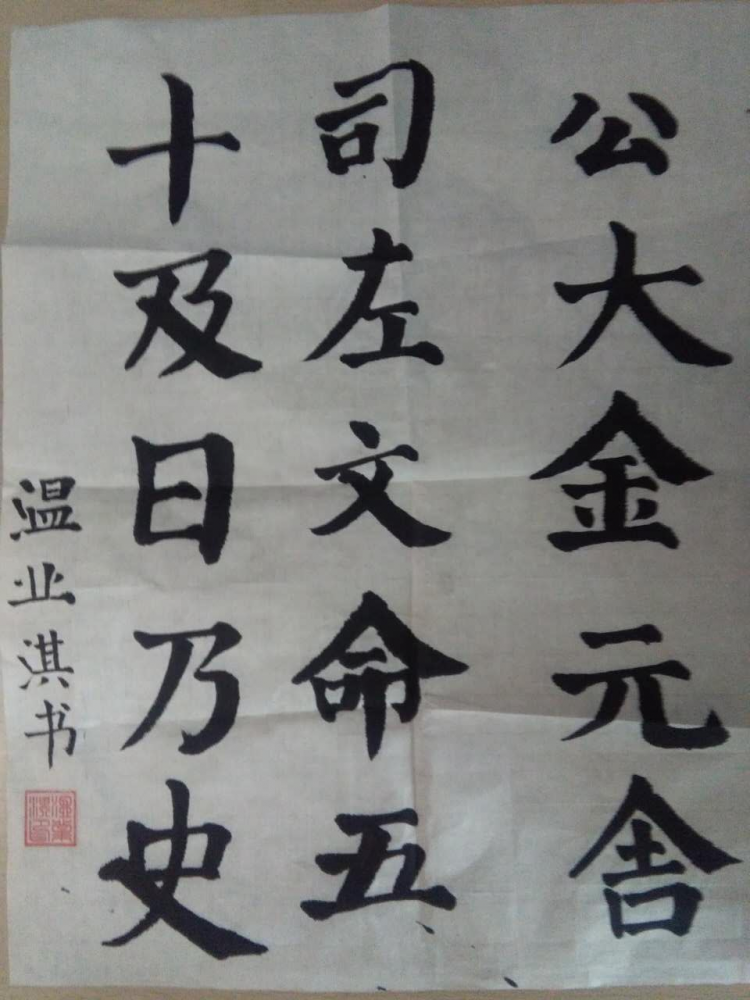 公大金元舎
司左文命五
十及日乃史
温业淇书